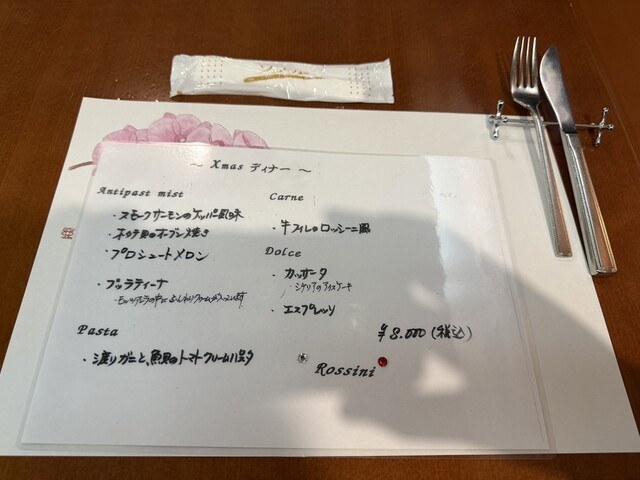 ～ Xmas ディナー ～
Antipast mist
・スモークサーモンのケッパー風味
・ホタテ貝のオーブン焼き
・プロシュートメロン
・ブッラティーナ
・モッツァレラの中に
Pasta
・渡りガニと、魚貝のトマトクリームパスタ
Carne
・牛フィレのロッシーニ風
Dolce
・カッサータ
・シチリアのアイスケーキ
・エスプレッソ
￥8.000 (税込)
Rossini